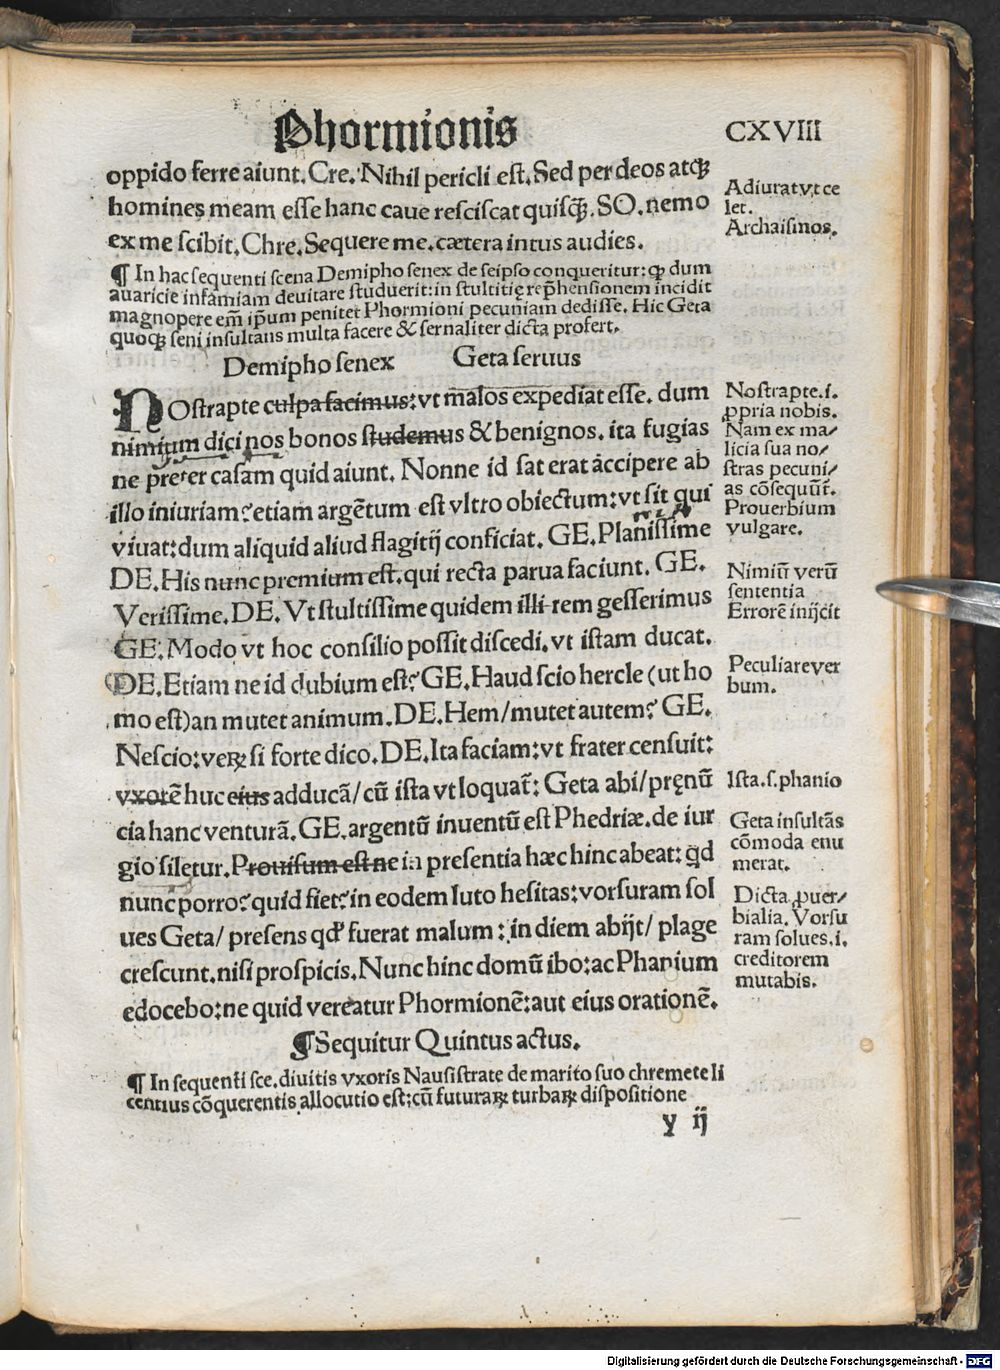 Phormionis
CXVIII
oppido ferre aiunt. Cre. Nihil pericli eſt. Sed per deos atq̃
homines meam eſſe hanc caue reſciſcat quiſq̃. SO. nemo
ex me ſcibit. Chre. Sequere me. cætera intus audies.
Adiurat vt ce
let.
Archaiſmos.
¶ In hac ſequenti ſcena Demipho ſenex de ſeipſo conqueritur: ꝙ dum
auaricie infamiam deuitare ſtuduerit: in ſtultitię rep̃henſionem incidit
magnopere em̃ ip̃um penitet Phormioni pecuniam dediſſe. Hic Geta
quoq̃ ſeni inſultans multa facere & ſernaliter dicta profert.
Demipho ſenex Geta ſeruus
NOſtrapte culpa facimus: vt malos expediat eſſe. dum
nimium dici nos bonos ſtudemus & benignos. ita fugias
ne preter caſam quid aiunt. Nonne id ſat erat accipere ab
illo iniuriam? etiam argētum eſt vltro obiectum: vt ſit qui
viuat: dum aliquid aliud flagitij conficiat. GE. Planiſſime
DE. His nunc premium eſt. qui recta parua faciunt. GE.
Veriſſime. DE. Vt ſtultiſſime quidem illi rem geſſerimus
GE. Modo vt hoc conſilio poſſit diſcedi. vt iſtam ducat.
DE. Etiam ne id dubium eſt? GE. Haud ſcio hercle (ut ho
mo eſt) an mutet animum. DE. Hem/ mutet autem? GE.
Neſcio: veꝝ ſi forte dico. DE. Ita faciam: vt frater cenſuit:
vxorē huc eius adducā/ cū iſta vt loquat̃: Geta abi/ pręnū
cia hanc venturā. GE. argentū inuentū eſt Phedriæ. de iur
gio ſiletur. Prouiſum eſt ne in preſentia hæc hinc abeat: qd
nunc porro? quid fiet? in eodem luto heſitas: vorſuram ſol
ues Geta/ preſens qd̓ fuerat malum: in diem abijt/ plage
creſcunt. niſi proſpicis. Nunc hinc domū ibo: ac Phanium
edocebo: ne quid vereatur Phormionē: aut eius orationē.
Noſtrapte. i.
ꝓpria nobis.
Nam ex ma/
licia ſua no/
ſtras pecuni/
as cōſequūt̃.
Prouerbium
vulgare.
Nimiū verū
ſententia
Errorē inijcit
Peculiare ver
bum.
Iſta. ſ. phanio
Geta inſultās
cōmoda enu
merat.
Dicta ꝓuer/
bialia. Vorſu
ram ſolues. i.
creditorem
mutabis.
¶ Sequitur Quintus actus.
¶ In ſequenti ſce. diuitis vxoris Nauſiſtrate de marito ſuo chremete li
centius cōquerentis allocutio eſt: cū futuraꝝ turbaꝝ diſpoſitione
y ij
Digitalisierung gefördert durch die Deutsche Forschungsgemeinschaft - DFG